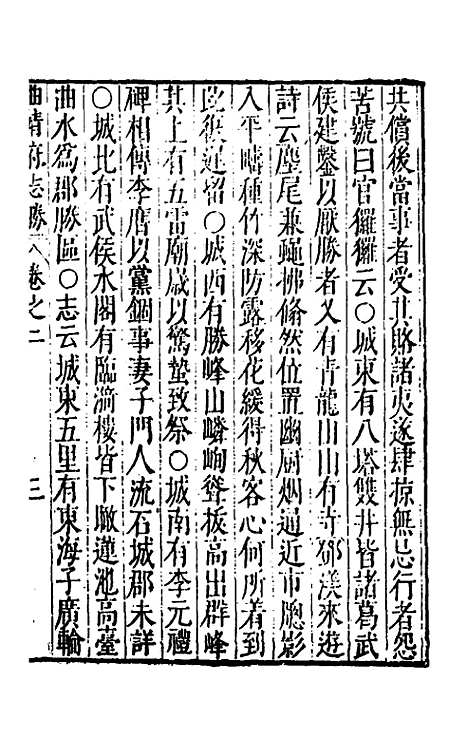 共償後當事者受其賂諸夷遂肆掠無忌行者怨
苦號曰官玀玀云○城東有八塔雙井皆諸葛武
侯建鑿以厭勝者又有青龍山山有寺鄧渼來遊
詩云塵尾兼蠅拂翛然位置幽厨烟通近市牕影
入平疇種竹深防露移花緩得秋客心何所着到
此復遲留○城西有勝峰山嶙峋聳拔高出群峰
其上有五雷廟歲以驚蟄致祭○城南有李元禮
碑相傳李膺以黨錮事妻子門人流石城郡未詳
○城比有武侯水閣有臨漪樓皆下瞰蓮池高臺
曲水爲郡勝區○志云城東五里有東海子廣輪
曲靖府志勝 卷之二 三